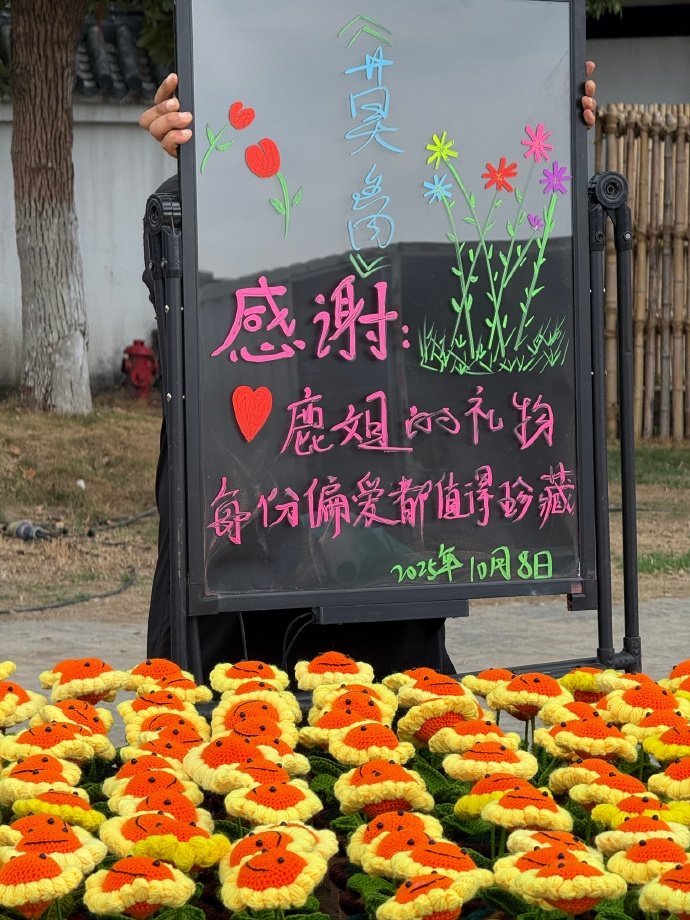 《莫离》
感谢：
鹿姐的礼物
每份偏爱都值得珍藏
2025年10月8日